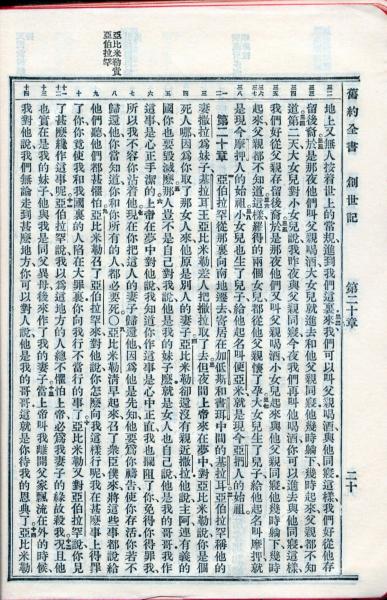 舊約全書 創世記 第二十章 二十
亞比米勒責
亞伯拉罕
地上又無人按着世上的常規進到我們這裏來我們可以叫父親喝酒與他同寢這樣我們好從他存
留後裔於是那夜他們叫父親喝酒大女兒就進去和他父親同寢他幾時躺下幾時起來父親都不知
道第二天大女兒對小女兒說我昨夜與父親同寢今夜我們再叫他喝酒你可以進去與他同寢這樣
我們好從父親存留後裔於是那夜他們又叫父親喝酒小女兒起來與他父親同寢他幾時躺下幾時
起來父親都不知道這樣羅得的兩個女兒都從他父親懷了孕大女兒生了兒子給他起名叫摩押就
是現今摩押人的始祖小女兒也生了兒子給他起名叫便亞米就是現今亞捫人的始祖
第二十章 亞伯拉罕從那裏向南地遷去寄居在加低斯和書珥中間的基拉耳亞伯拉罕稱他的
妻撒拉爲妹子基拉耳王亞比米勒差人把撒拉取了去但夜間上帝來在夢中對亞比米勒說你是個
死人哪因爲你取了那女人來他原是別人的妻子亞比米勒卻還沒有親近撒拉他說主阿連有義的
國你也要毀滅麽那人豈不是自己對我說他是我的妹子麽就是女人也自己說他是我的哥哥我作
這事是心正手潔的上帝在夢中對他說我知道你作這事是心中正直我也攔阻了你免得你得罪我
所以我不容你沾着他現在你把這人的妻子歸還他因爲他是先知他要爲你禱告使你存活你若不
歸還他你當知道你和你所有的人都必要死〇亞比米勒清早起來召了衆臣僕來將這些事都說給
他們聽他們都甚懼怕亞比米勒召了亞伯拉罕來對他說你怎麽向我這樣行呢我在甚麽事上得罪
了你你竟使我和我國裏的人陷在大罪裏你向我行不當行的事了亞比米勒又對亞伯拉罕說你見
了甚麽纔作這事呢亞伯拉罕說我以爲這地方的人總不懼怕上帝必爲我妻子的緣故殺我況且他
也實在是我的妹子他與我是同父異母後來作了我的妻子當上帝叫我離開父家飄流在外的時候
我對他說我們無論走到甚麽地方你可以對人說他是我的哥哥這就是你待我的恩典了亞比米勒